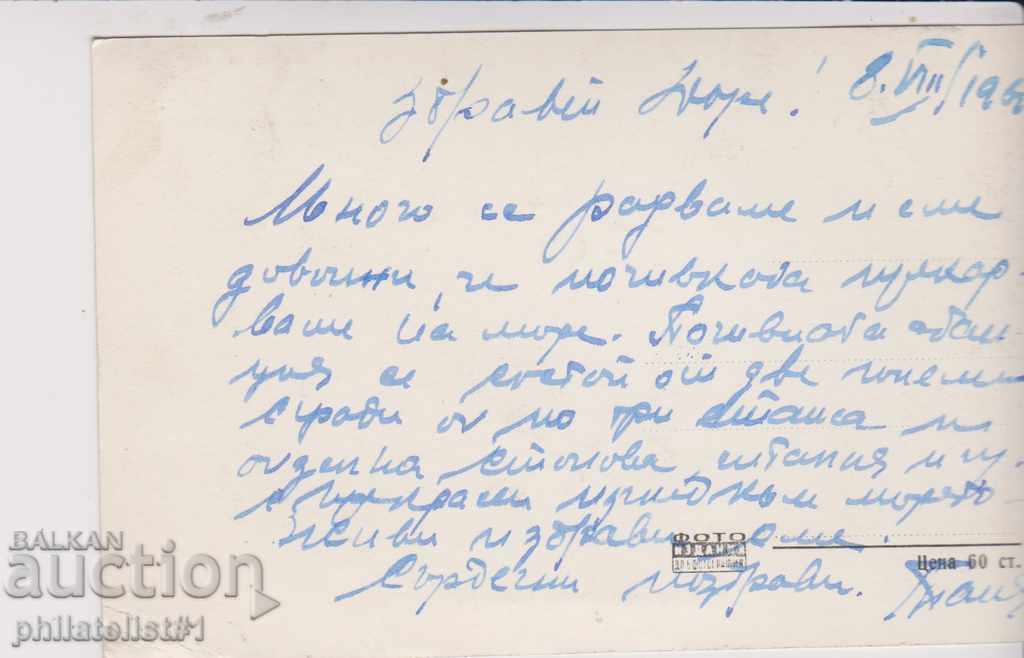 Здравей Жоре! 8.VIII/196
Много се радваме и сме
доволни, че почивката прекар
ваме на море. Почивната стан
ция се състой от две големи
сгради от по три етажа и
отделна столова,
с прекрасен изглед към морето
Живи и здрави сме.
Сърдечни поздрави.
ФОТО
ДП БЪЛГ. ФОТОГРАФИЯ
Цена 60 ст.
BALKAN
auction
philatelist#1